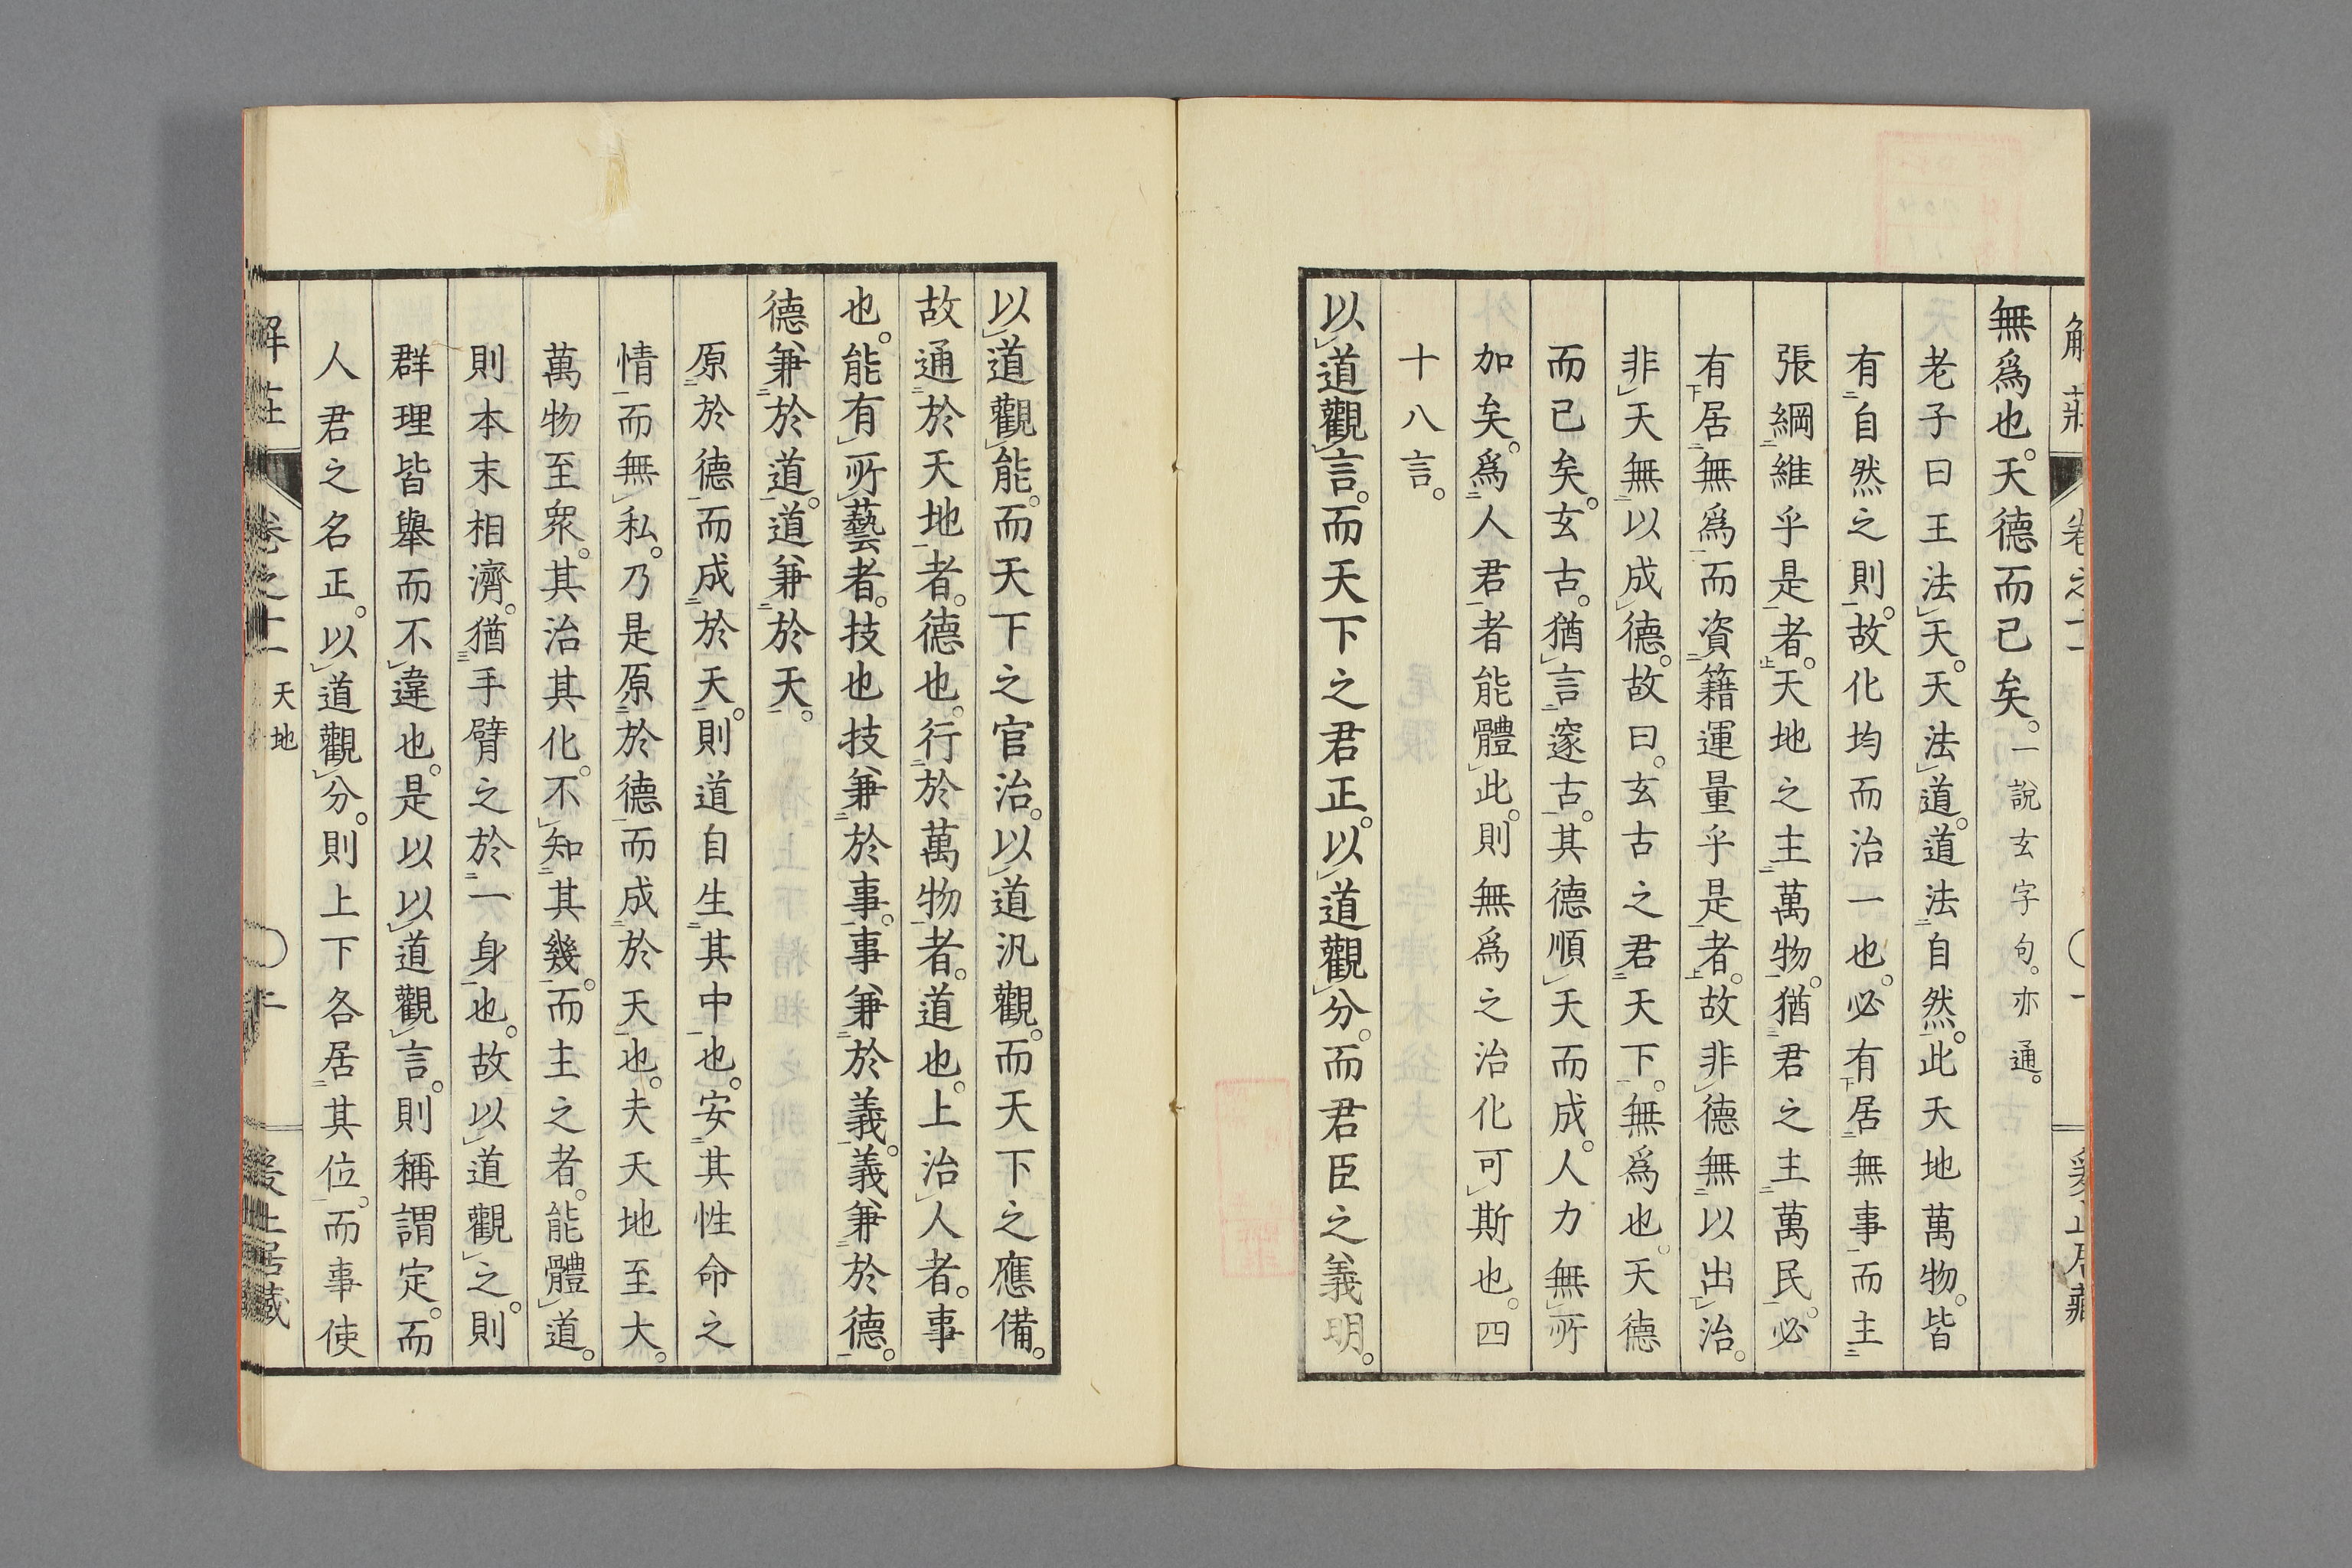 無爲也。天德而已矣。一說玄字句。亦通。
老子曰王法天。天法道。道法自然。此天地萬物。皆
有自然之則。故化均而治一也。必有居無事而主
張綱維乎是者。天地之主萬物。猶君之主萬民。必
有居無爲而資籍運量乎是者。故非德無以出治。
非天無以成德。故曰。玄古之君天下。無爲也。天德
而已矣。玄古。猶言邃古。其德順天而成。人力無所
加矣。爲人君者能體此。則無爲之治化可斯也。四
十八言。
以道觀言。而天下之君正。以道觀分。而君臣之義明。
以道觀能。而天下之官治。以道汎觀。而天下之應備。
故通於天地者。德也。行於萬物者。道也。上治人者。事
也。能有所藝者。技也技兼於事。事兼於義。義兼於德。
德兼於道。道兼於天。
原於德而成於天。則道自生其中也。安其性命之
情而無私。乃是原於德而成於天也。夫天地至大。
萬物至衆。其治其化。不知其幾。而主之者。能體道。
則本末相濟。猶手臂之於一身也。故以道觀之。則
群理皆舉而不違也。是以以道觀言。則稱謂定。而
人君之名正。以道觀分。則上下各居其位。而事使
解莊
卷之十二
天地